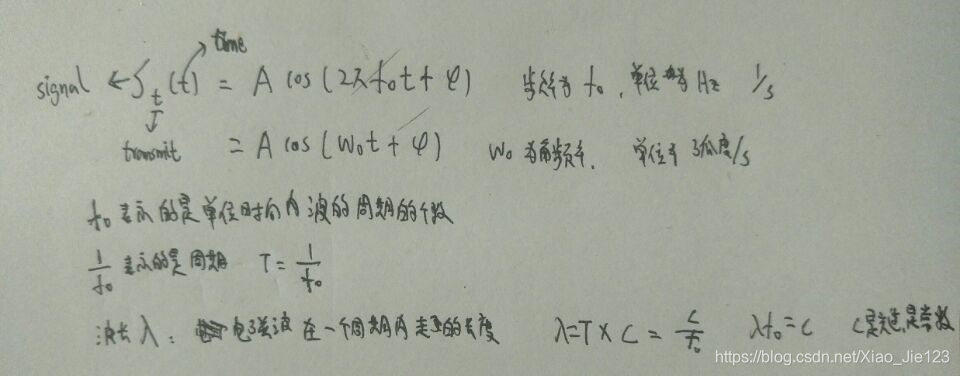 time
signal ← S_t(t) = A cos(2πf₀t + φ) 频率为 f₀, 单位为 Hz 1/s
transmit = A cos(w₀t + φ) w₀为角频率, 单位 弧度/s
f₀表示的是单位时间内波的周期的个数
1/f₀ 表示的是周期 T = 1/f₀
波长λ: 电磁波在一个周期内走的长度 λ=T×C = C/f₀ λf₀=C C是光速,是常数
https://blog.csdn.net/Xiao_Jie123